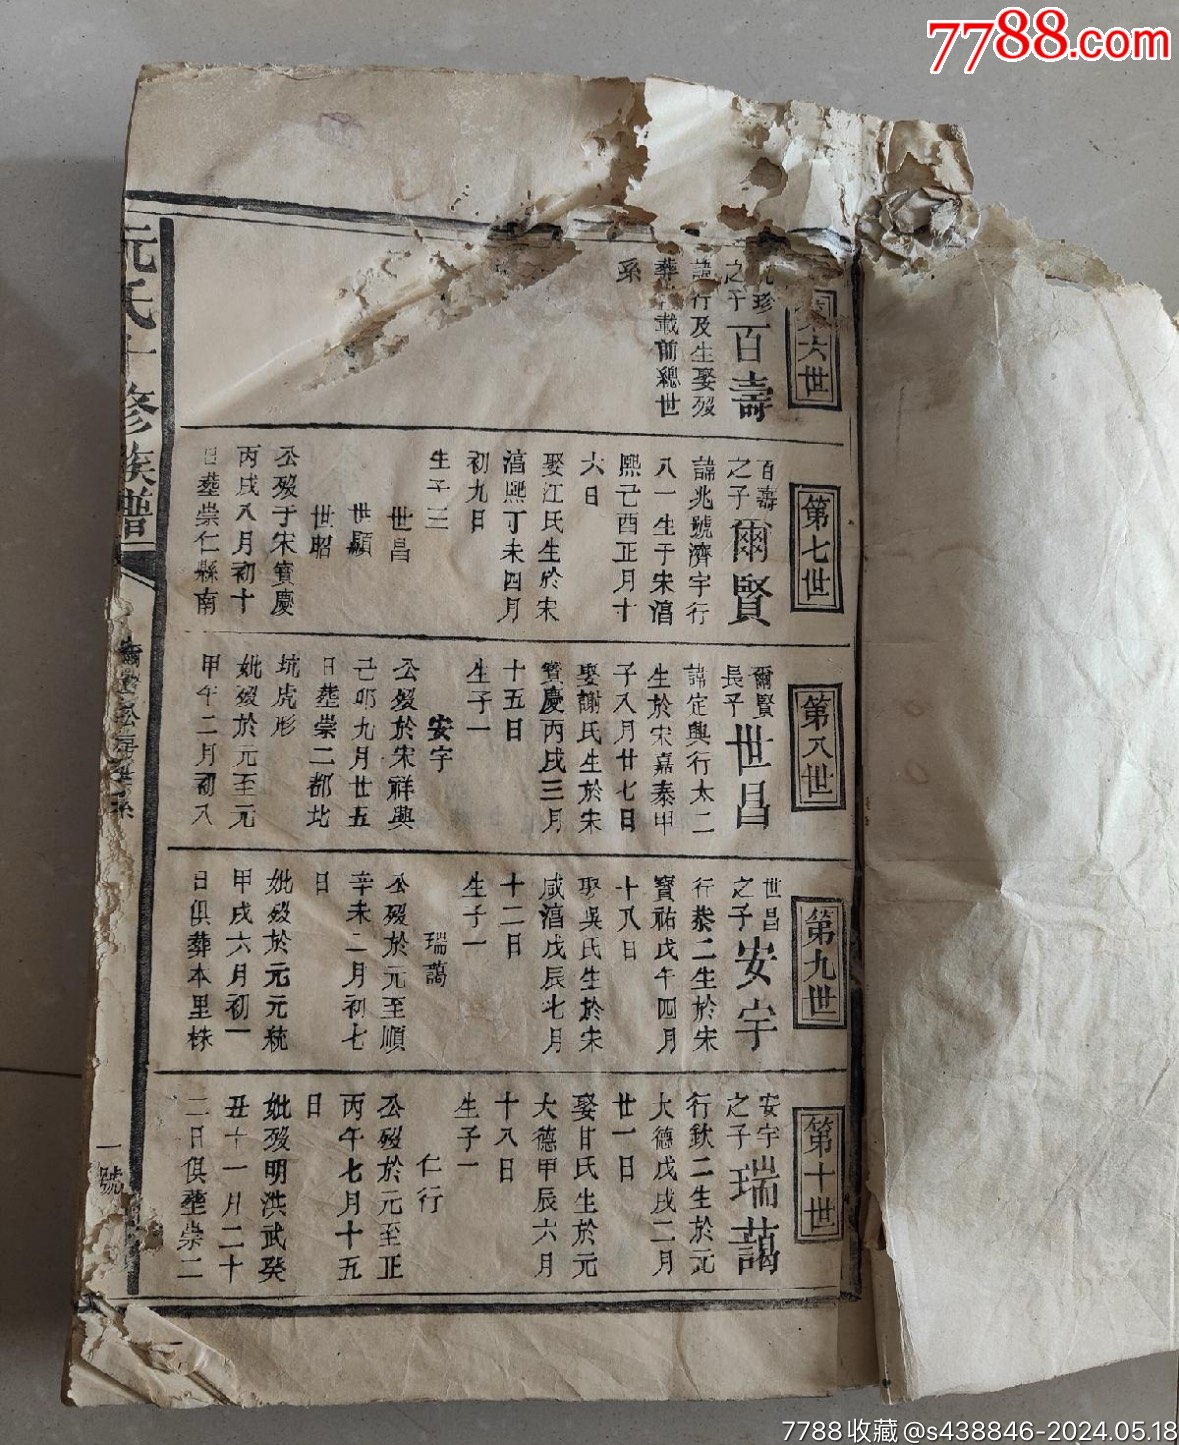 7788.com
第六世
珍
之子
百壽
諱行及生娶歿
葬載前總世
系
第七世
百壽
之子
爾賢
諱兆號濟宇行
八一生于宋湻
熙己酉正月十
六日
娶江氏生於宋
湻熙丁未四月
初九日
生子三
世昌
世顯
世昭
公歿于宋寶慶
丙戌八月初十
日葬崇仁縣南
第八世
爾賢
長子
世昌
諱定興行太二
生於宋嘉泰甲
子八月廿七日
娶謝氏生於宋
寶慶丙戌三月
十五日
生子一
安宇
公歿於宋祥興
己卯九月廿五
日葬崇二都北
坑虎形
妣歿於元至元
甲午二月初八
第九世
世昌
之子
安宇
行恭二生於宋
寶祐戊午四月
十八日
娶吳氏生於宋
咸湻戊辰七月
十二日
生子一
瑞藹
公歿於元至順
辛未二月初七
日
妣歿於元元統
甲戌六月初一
日俱葬本里株
第十世
安宇
之子
瑞藹
行欽二生於元
大德戊戌二月
廿一日
娶甘氏生於元
大德甲辰六月
十八日
生子一
仁行
公歿於元至正
丙午七月十五
日
妣歿明洪武癸
丑十一月二十
二日俱葬崇二
元氏十修族譜
世系
一號
7788收藏@s438846-2024.05.18